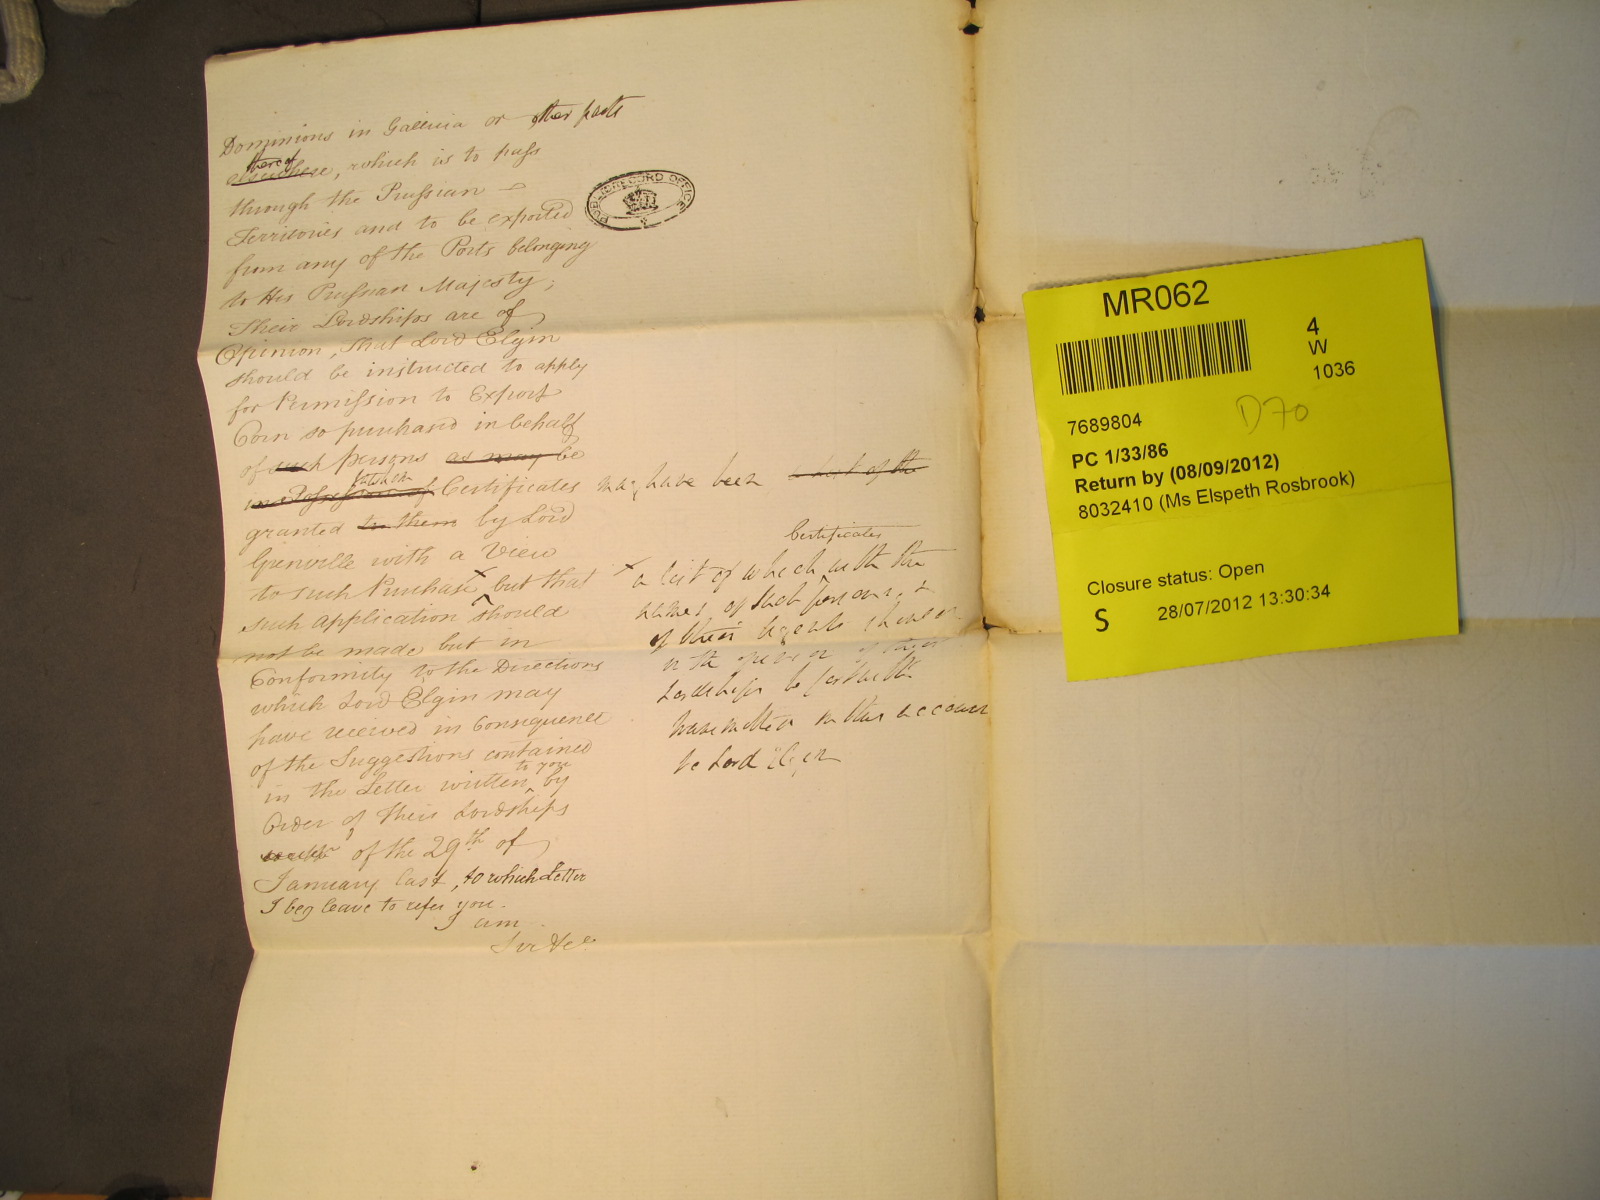 Dominions in Gallicia or other parts
thereof
elsewhere, which is to pass
through the Prussian
Territories and to be exported
from any of the Ports belonging
to His Prussian Majesty;
Their Lordships are of
Opinion, that Lord Elgin
should be instructed to apply
for Permission to Export
Corn so purchased in behalf
of such persons as may be
in Possession of Certificates may have been a list of the
granted to them by Lord
Grenville with a View
to such Purchase x but that
such application should
not be made but in
Conformity to the Directions
which Lord Elgin may
have received in Consequence
of the Suggestions contained
to you
in the Letter written by
Order of their Lordships
of the 29th of
January last, to which Letter
I beg leave to refer you.
I am
Sir &ca
Certificates
x a list of which with the
names of such persons, &
of their Agents should
in the opinion of their
Lordships be forthwith
transmitted on this account
to Lord Elgin
PUBLIC RECORD OFFICE
MR062
4
W
1036
D70
7689804
PC 1/33/86
Return by (08/09/2012)
8032410 (Ms Elspeth Rosbrook)
Closure status: Open
S 28/07/2012 13:30:34